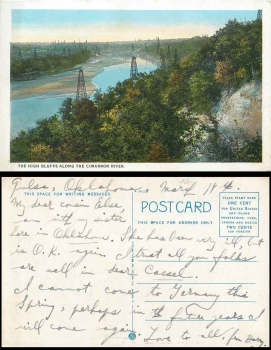 THE HIGH BLUFFS ALONG THE CIMARRON RIVER.
THIS SPACE FOR WRITING MESSAGES
POSTCARD
THIS SPACE FOR ADDRESS ONLY.
PLACE STAMP HERE
ONE CENT
FOR UNITED STATES
AND ISLAND
POSSESSIONS, CUBA,
CANADA AND MEXICO
TWO CENTS
FOR FOREIGN
Tulsa, Oklahoma, 18th.
My dear cousin Else,
am with my sister
here in Oklahoma. She has been very ill, but
is O.K. again. I trust all you folks
are well in dear Cassel.
I cannot come to Germany this
Spring, perhaps in the future years I
will come again. Love to all, from